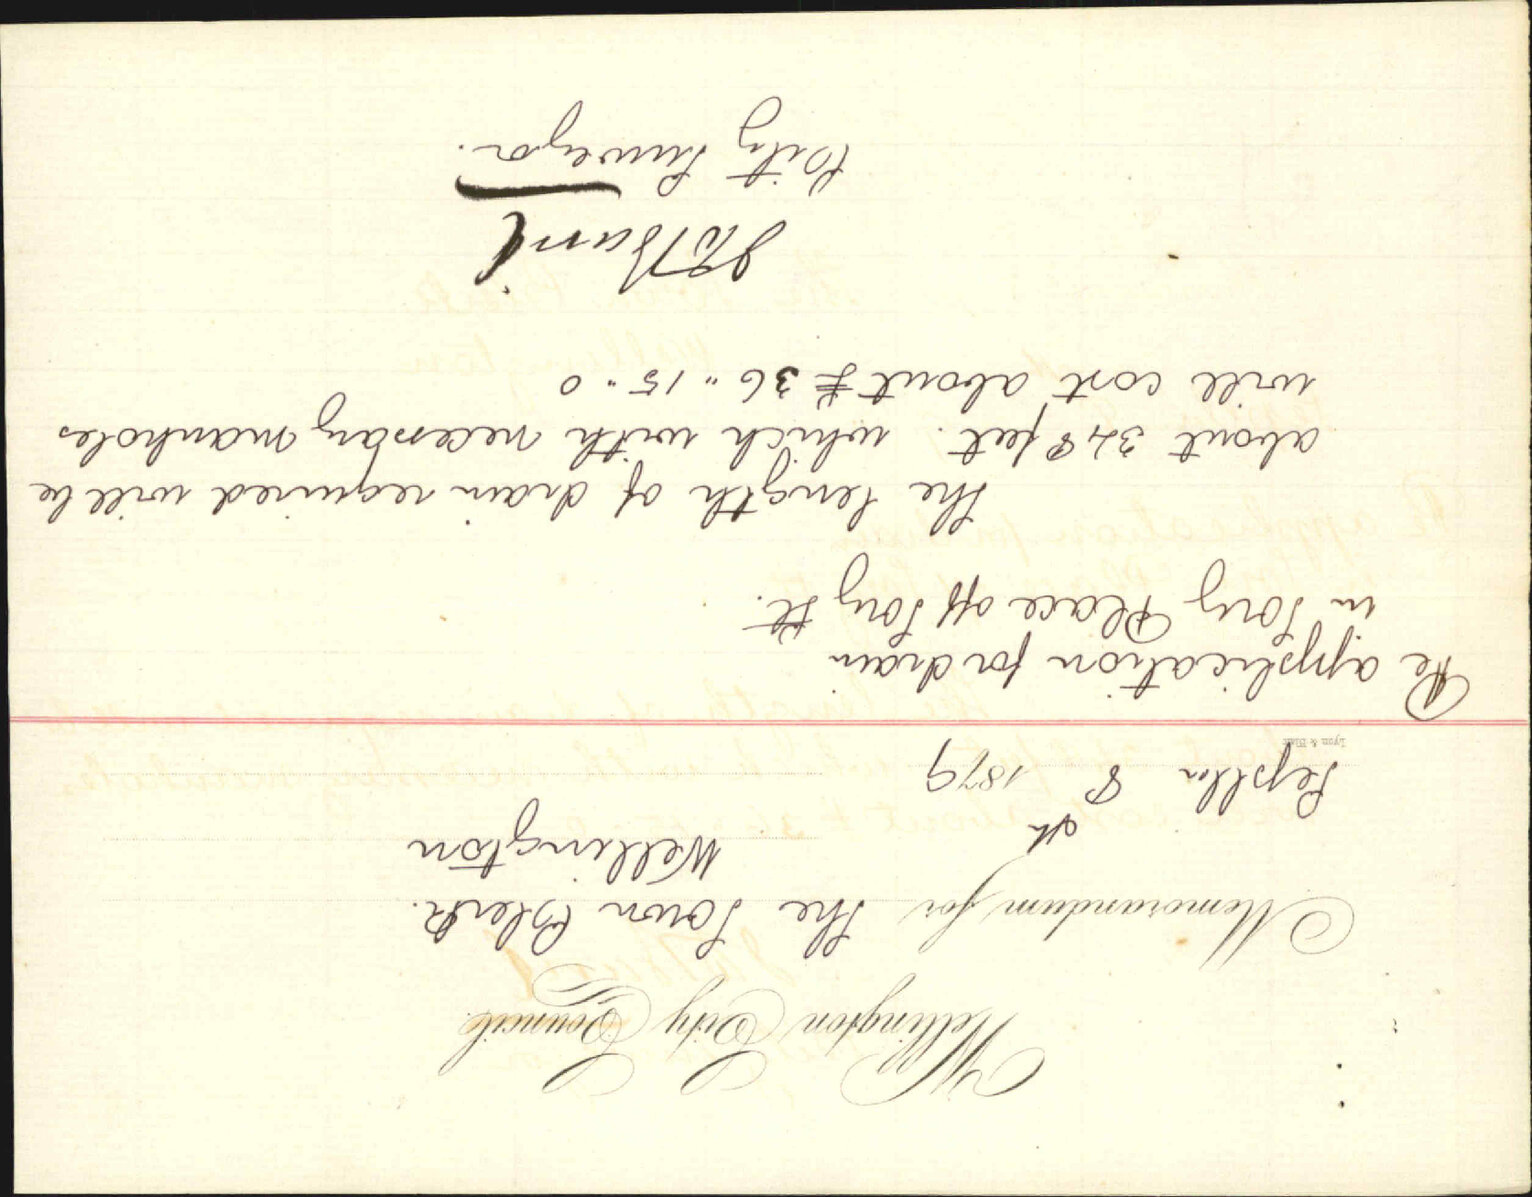 Wellington City Council.
Memorandum for The Town Clerk.
Wellington
Septber 8th 1879
Lyon & Blair
Re application for drain
in Tory Place off Tory St.
The length of drain required will be
about 348 feet. which with necessary manholes
will cost about £36 " 15 " 0
City Surveyor.